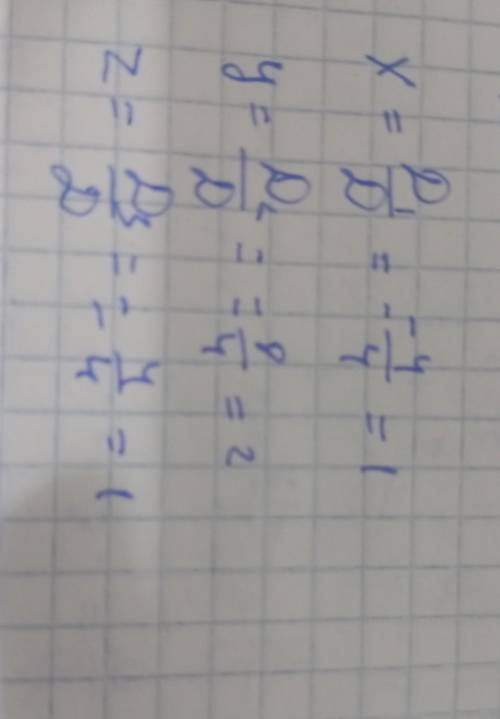 x = D₁/D = - -4/4 = 1
y = D₂/D = = 8/4 = 2
z = D₃/D = - 4/-4 = 1